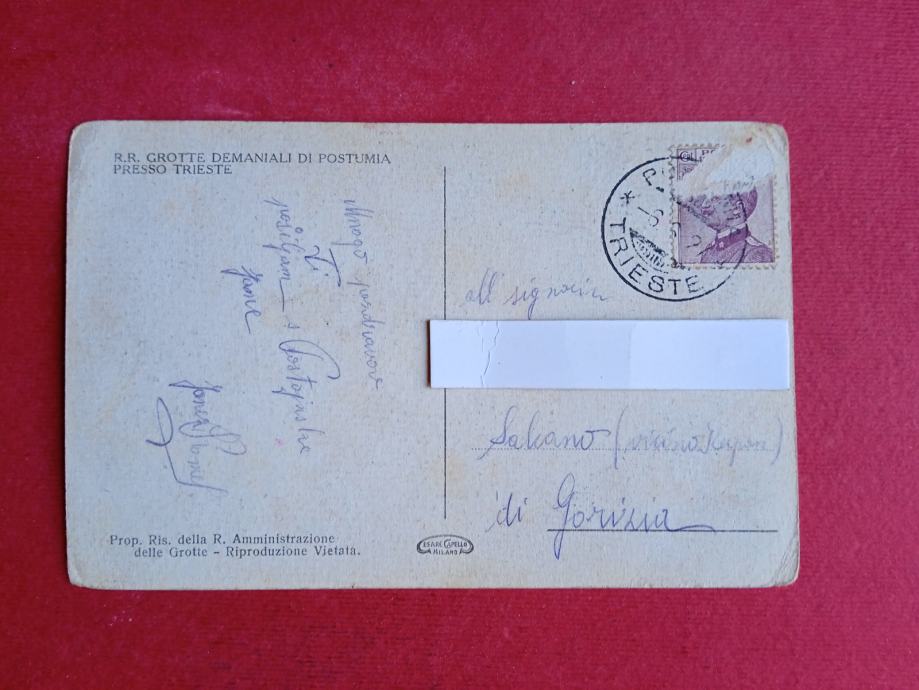 R.R. GROTTE DEMANIALI DI POSTUMIA
PRESSO TRIESTE
Mnogo pozdravov
Ti
pošiljam s Postojnske
jame
Prop. Ris. della R. Amministrazione
delle Grotte - Riproduzione Vietata.
CESARE CAPELLO
MILANO
TRIESTE
all signorin
Salcano (vicino
di Gorizia